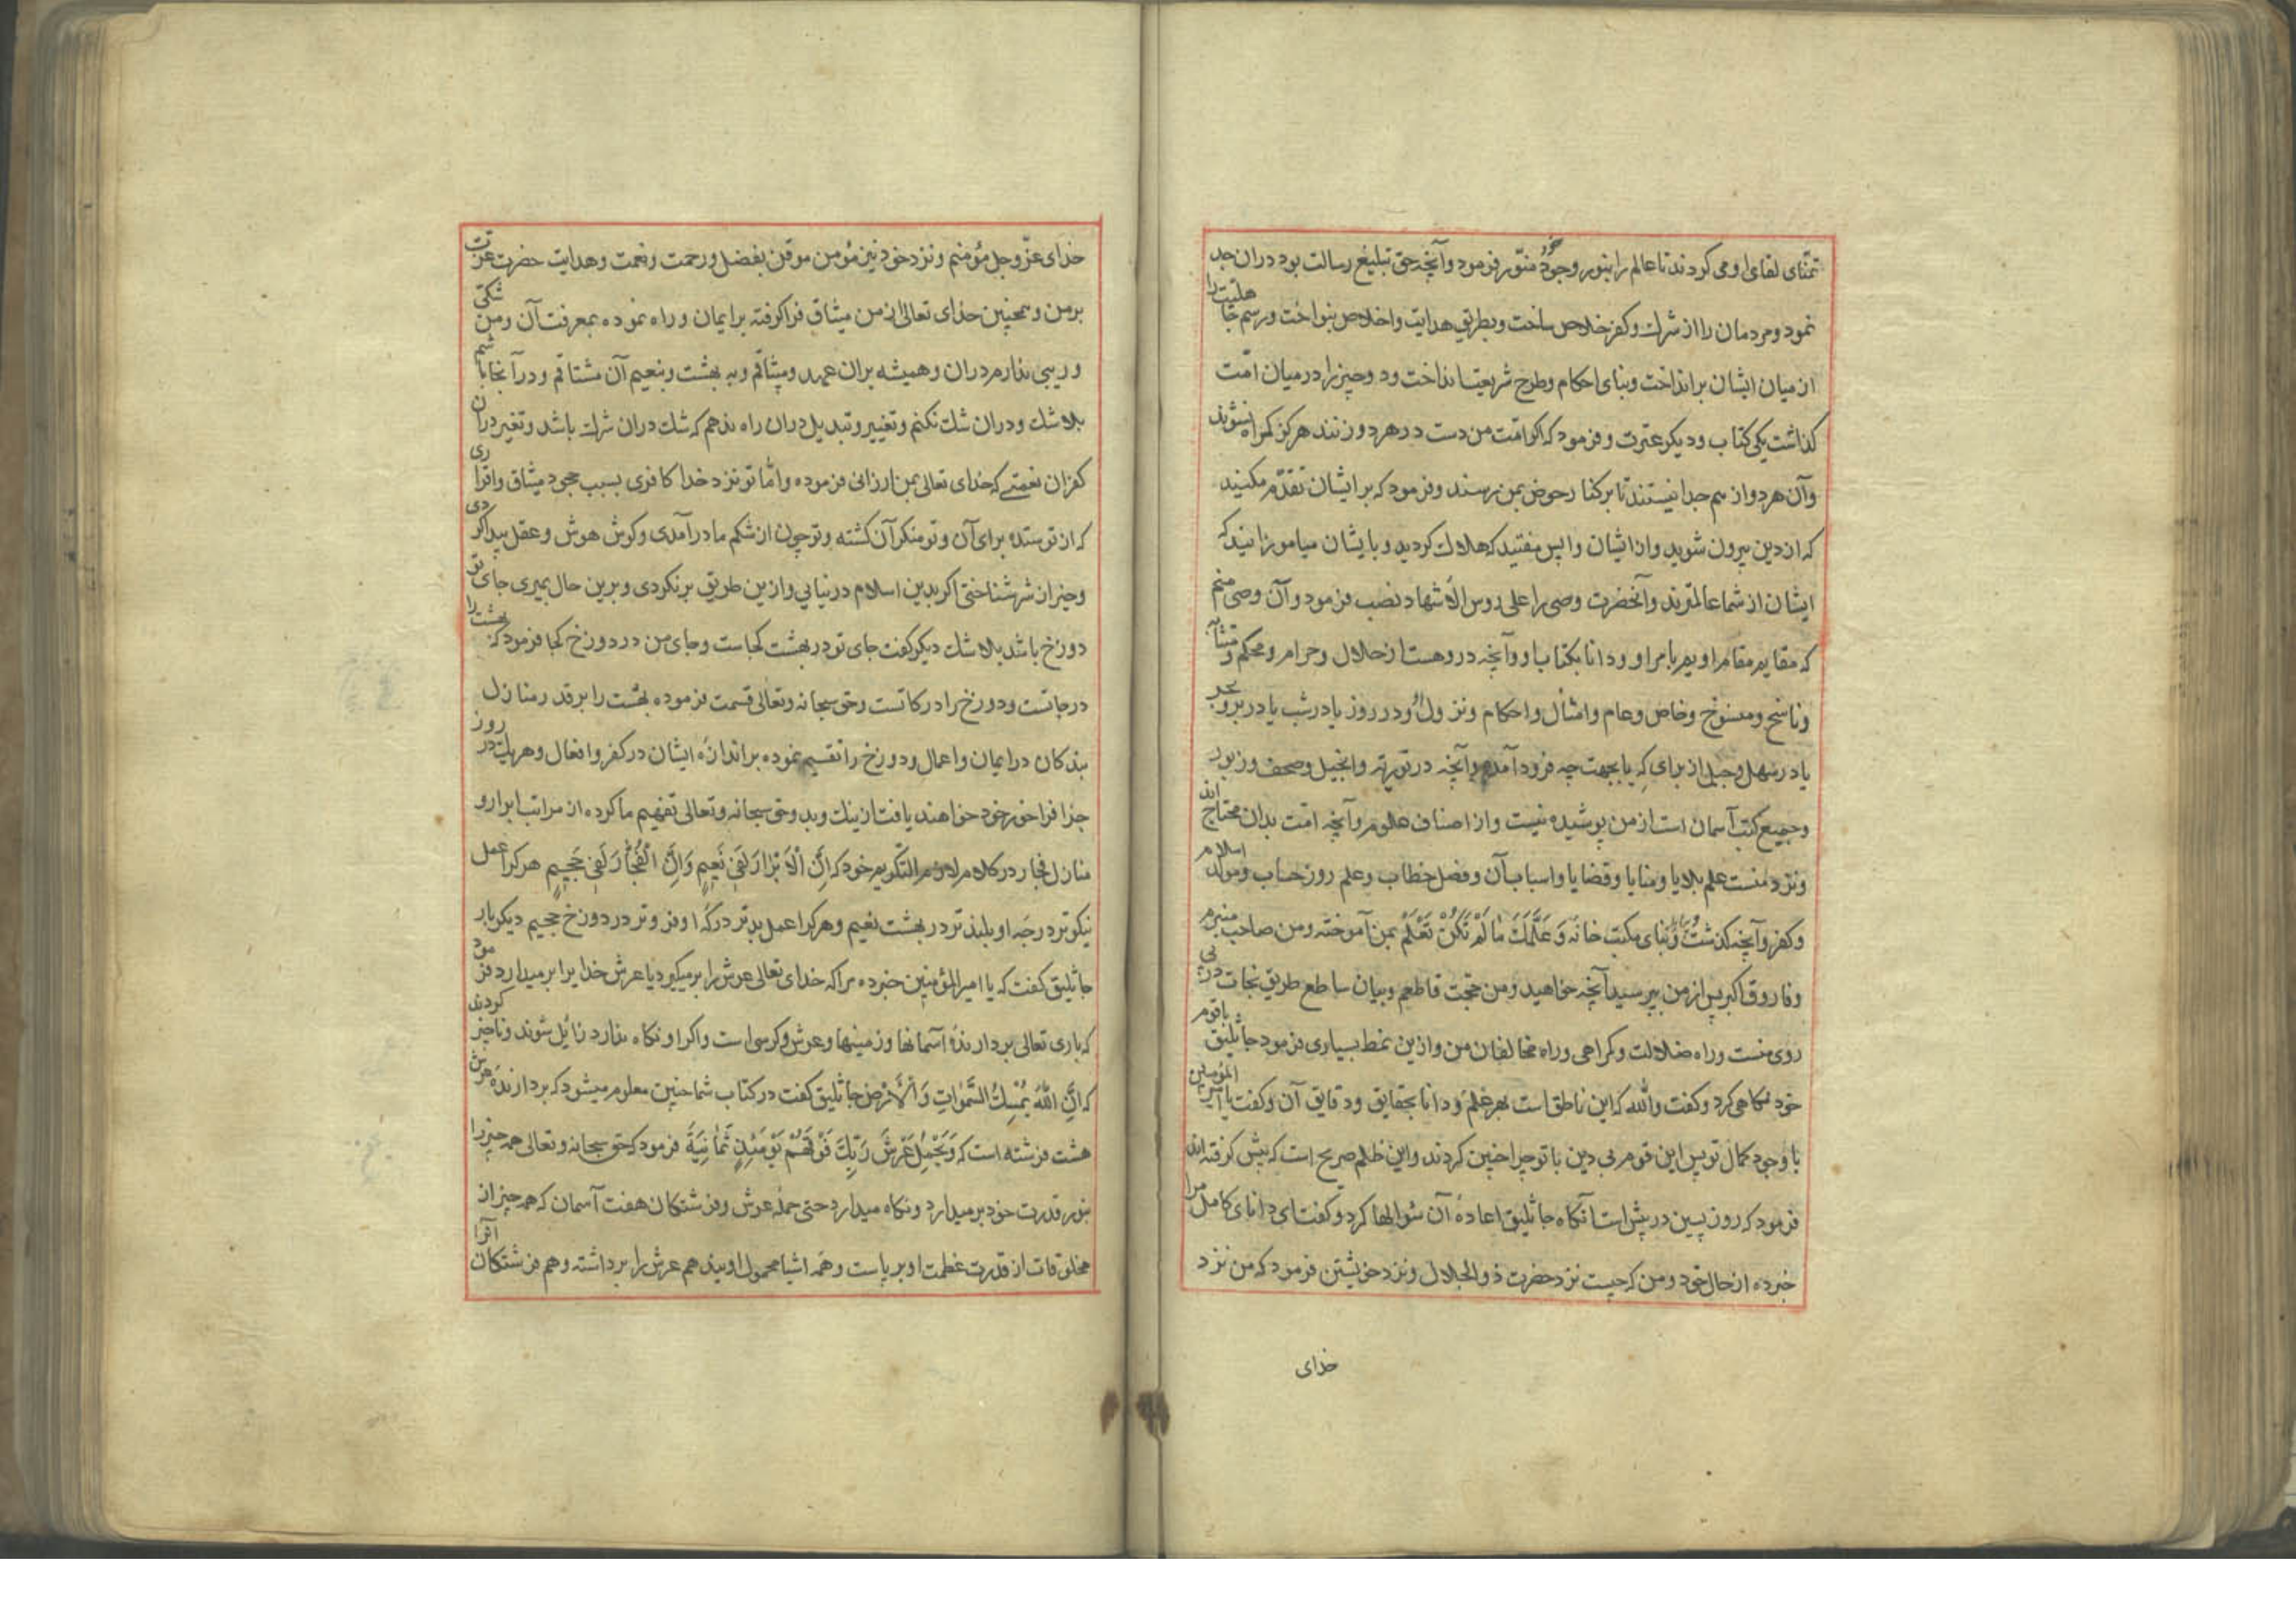 تمنّای لقای او می کردند تا عالم را بنور وجود خود منوّر فرمود وآنچه حق تبلیغ رسالت بود دران جد
نمود ومردمان را از شرك وکفر خلاص ساخت وبطریق هدایت واخلاص بنواخت ورسم جاهلیت را
از میان ایشان برانداخت وبنای احکام وطرح شریعت انداخت ودوچیز را درمیان امّت
کذاشت یکی کتاب ودیکر عترت وفرمود که اکر امّت من دست درهردو زنند هرکز کمراه نشوند
وآن هردو از هم جدا نیستند تا برکنار حوض بمن رسند وفرمود که برایشان تقدّم مکنید
که ازدین بیرون شوید وازایشان واپس میفتید که هلاك کردید وبایشان میاموزانید که
ایشان ازشما عالمترند وآنحضرت وصی را علی روس الاشهاد نصب فرمود وآن وصی منم
که مقایم مقام او بهر بامر او ودانا بکتاب او وآنچه دروهست از حلال وحرام ومحکم ومتشابه
وناسخ ومنسوخ وخاص وعام وامثال واحکام ونزول او در روز یا درشب یا دربر وبحر
یا درسهل وجبل از برای که یا بجهت چه فرود آمده وآنچه درتوریة وانجیل وصحف وزبور
وجمیع کتب آسمان است از من پوشیده نیست واز اصناف علوم وآنچه امّت بدان محتاج اند
ونزد منست علم بلایا ومنایا وقضایا واسباب آن وفصل خطاب وعلم روز حساب ومولد اسلام
وکفر وآنچه کذشت وبنای مکتب خانه وَعَلَّمَكَ مَا لَمْ تَكُنْ تَعْلَمُ بمن آموخته ومن صاحب میسم
وفاروق اکبر پس ازمن بپرسید آنچه خواهید ومن حجّت قاطعم وبیان ساطع طریق نجات درپی
روی منست وراه ضلالت وکمراهی وراه مخالفان من وازین نمط بسیاری فرمود جاثلیق باقوم
خود نکاهی کرد وکفت والله که این ناطق است بهر علم ودانا بحقایق ودقایق آن وکفت یا امیر المؤمنین
با وجود کمال تو پس این قوم بی دین باتو چرا چنین کردند واین ظلم صریح است که پیش کرفته اند
فرمود که روز پسین درپیش است آنکاه جاثلیق اعادهٔ آن سؤالها کرد وکفت ای دانای کامل مرا
خبرده ازحال خود ومن که چیست نزد حضرت ذوالجلال ونزد خویشتن فرمود که من نزد
خدای
خدای عزّوجل مؤمنم ونزد خود نیز مؤمن موقن بفضل ورحمت ونعمت وهدایت حضرت عزّت
برمن وهمچنین خدای تعالی ازمن میثاق فراکرفته برایمان وراه نموده بمعرفت آن ومن شکی
وریبی ندارم دران وهمیشه بران عهد ومیثاقم وبه بهشت ونعیم آن مشتاقم ودرآنجا باشم
بلاشك ودران شك نکنم وتغییر وتبدیل دران راه ندهم که شك دران شرك باشد وتغیر دران
کفران نعمتی که خدای تعالی بمن ارزانی فرموده وامّا تو نزد خدا کافری بسبب جحود میثاق واقراری
که از تو ستده برای آن وتو منکر آن کشته وتو چون از شکم مادر آمدی وکوش هوش وعقل پیدا کردی
وخیر از شر شناختی اکر بدین اسلام درنیایی وازین طریق برنکردی وبرین حال بمیری جای تو
دوزخ باشد بلاشك دیکر کفت جای تو در بهشت کجاست وجای من در دوزخ کجا فرمود که بهشت را
درجاتست ودوزخ را درکاتست وحق سبحانه وتعالی قسمت فرموده بهشت را برقدر منازل
بندکان درایمان واعمال ودوزخ را تقسیم نموده براندازهٔ ایشان درکفر وافعال وهریك در روز
جزا فراخور خود خواهند یافت از نیك وبد وحق سبحانه وتعالی تفهیم ما کرده از مراتب ابرار و
منازل فجار درکلام لازم التکریم خود که اِنَّ الْاَبْرَارَ لَفِی نَعِیمٍ وَاِنَّ الْفُجَّارَ لَفِی جَحِیمٍ هرکرا عمل
نیکوتر درجه او بلندتر در بهشت نعیم وهرکرا عمل بدتر درکهٔ او فروتر در دوزخ جحیم دیکر بار
جاثلیق کفت که یا امیر المؤمنین خبرده مرا که خدای تعالی عرش را برمیکیرد یا عرش خدایرا برمیدارد فرمود
که باری تعالی بردارندهٔ آسمانها وزمینها وعرش وکرسی است واکر او نکاه ندارد زائل شوند وناچیز کردند
که اِنَّ اللهَ یُمْسِكُ السَّمٰوَاتِ وَالْاَرْضَ جاثلیق کفت درکتاب شما چنین معلوم میشود که بردارندهٔ عرش
هشت فرشته است که وَیَحْمِلُ عَرْشَ رَبِّكَ فَوْقَهُمْ یَوْمَئِذٍ ثَمَانِیَةٌ فرمود که حق سبحانه وتعالی همه چیز را
بنور قدرت خود برمیدارد ونکاه میدارد حتی حمله عرش وفرشتکان هفت آسمان که همه چیز از
مخلوقات از قدرت عظمت او برپاست وهمه اشیا محمول اویند هم عرش را برداشته وهم فرشتکان آنرا